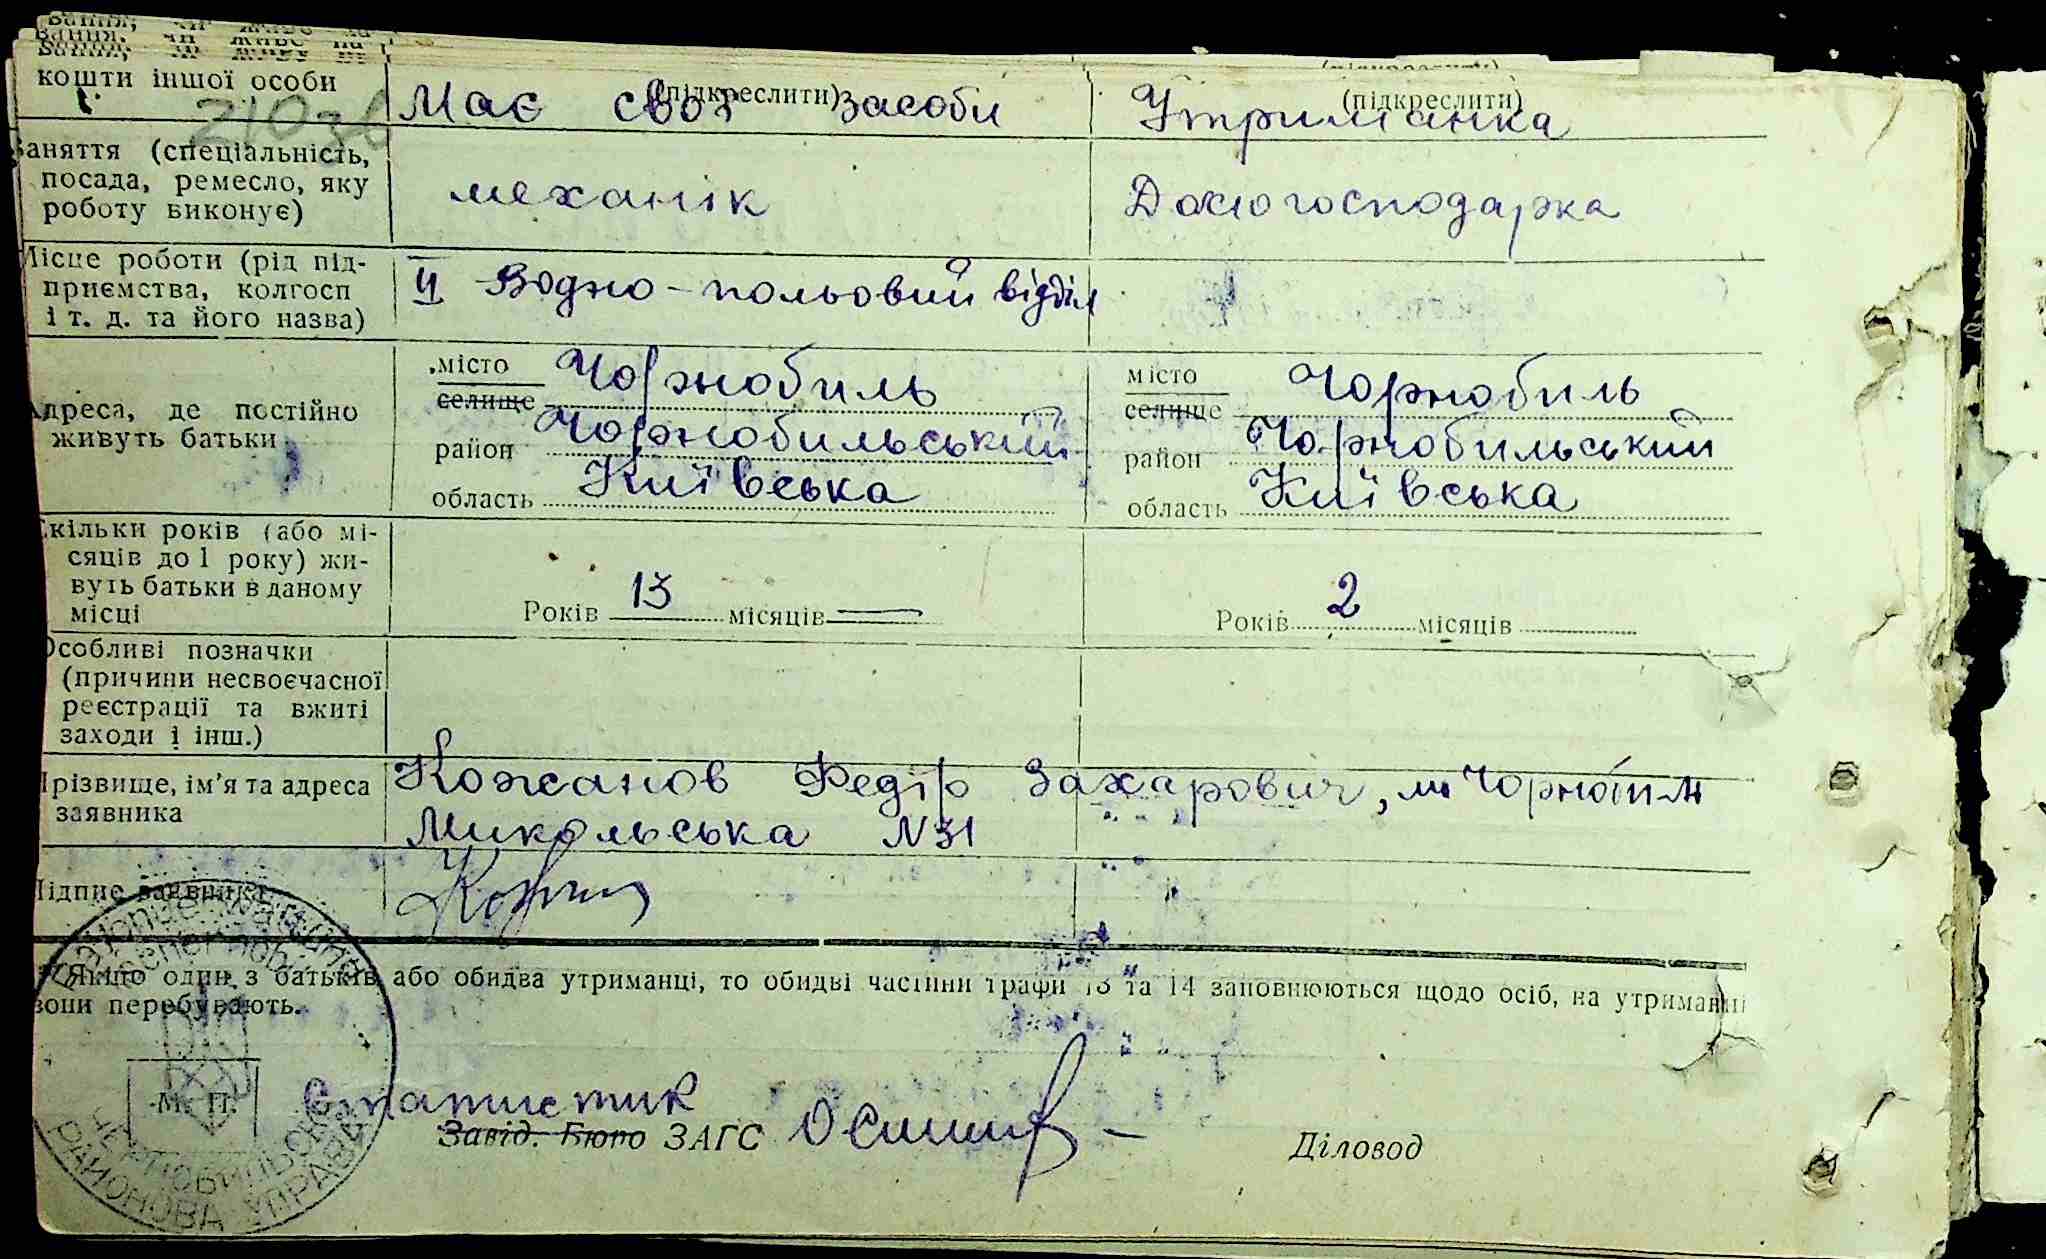 кошти іншої особи
(підкреслити)
(підкреслити)
Має свої засоби
Утриманка
Заняття (спеціальність,
посада, ремесло, яку
роботу виконує)
механік
Домогосподарка
Місце роботи (рід під-
приємства, колгосп
і т. д. та його назва)
ІІ Водно-польовий відділ
Адреса, де постійно
живуть батьки
місто
селище
Чорнобиль
район Чорнобильський
область Київська
місто
селище
Чорнобиль
район Чорнобильський
область Київська
Скільки років (або мі-
сяців до 1 року) жи-
вуть батьки в даному
місці
Років 13 місяців —
Років 2 місяців
Особливі позначки
(причини несвоєчасної
реєстрації та вжиті
заходи і інш.)
Прізвище, ім'я та адреса
заявника
Кожанов Федір Захарович, м Чорнобиль
Микольська N 31
Підпис заявника
Якщо один з батьків або обидва утриманці, то обидві частини графи 13 та 14 заповнюються щодо осіб, на утриманні
вони перебувають.
М. П.
Статистик
Завід. Бюро ЗАГС
Діловод
ЧЕРНОБИЛЬСЬКА
РАЙОНОВА УПРАВА